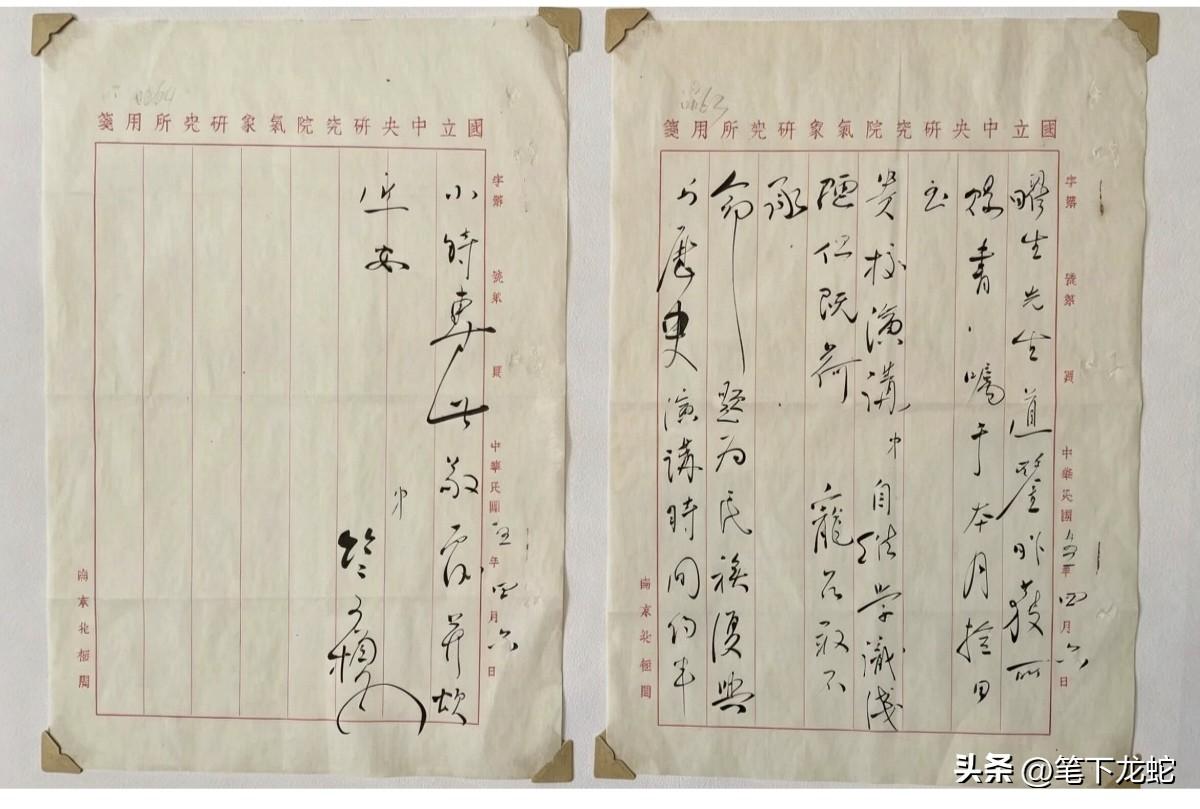 國立中央研究院氣象研究所用箋
字第 號第 頁 中華民國廿五年四月六日
曜生先生道鑒昨獲所
賜書囑于本月拾日
至
貴校演講弟自維學識淺
陋但既荷 寵召敢不
承
命 題為民族復興
與歷史演講時間約半
南京北極閣
國立中央研究院氣象研究所用箋
字第 號第 頁 中華民國廿五年四月六日
小時專此敬覆並頌
安
弟
竺可楨
南京北極閣
头条 @笔下龙蛇